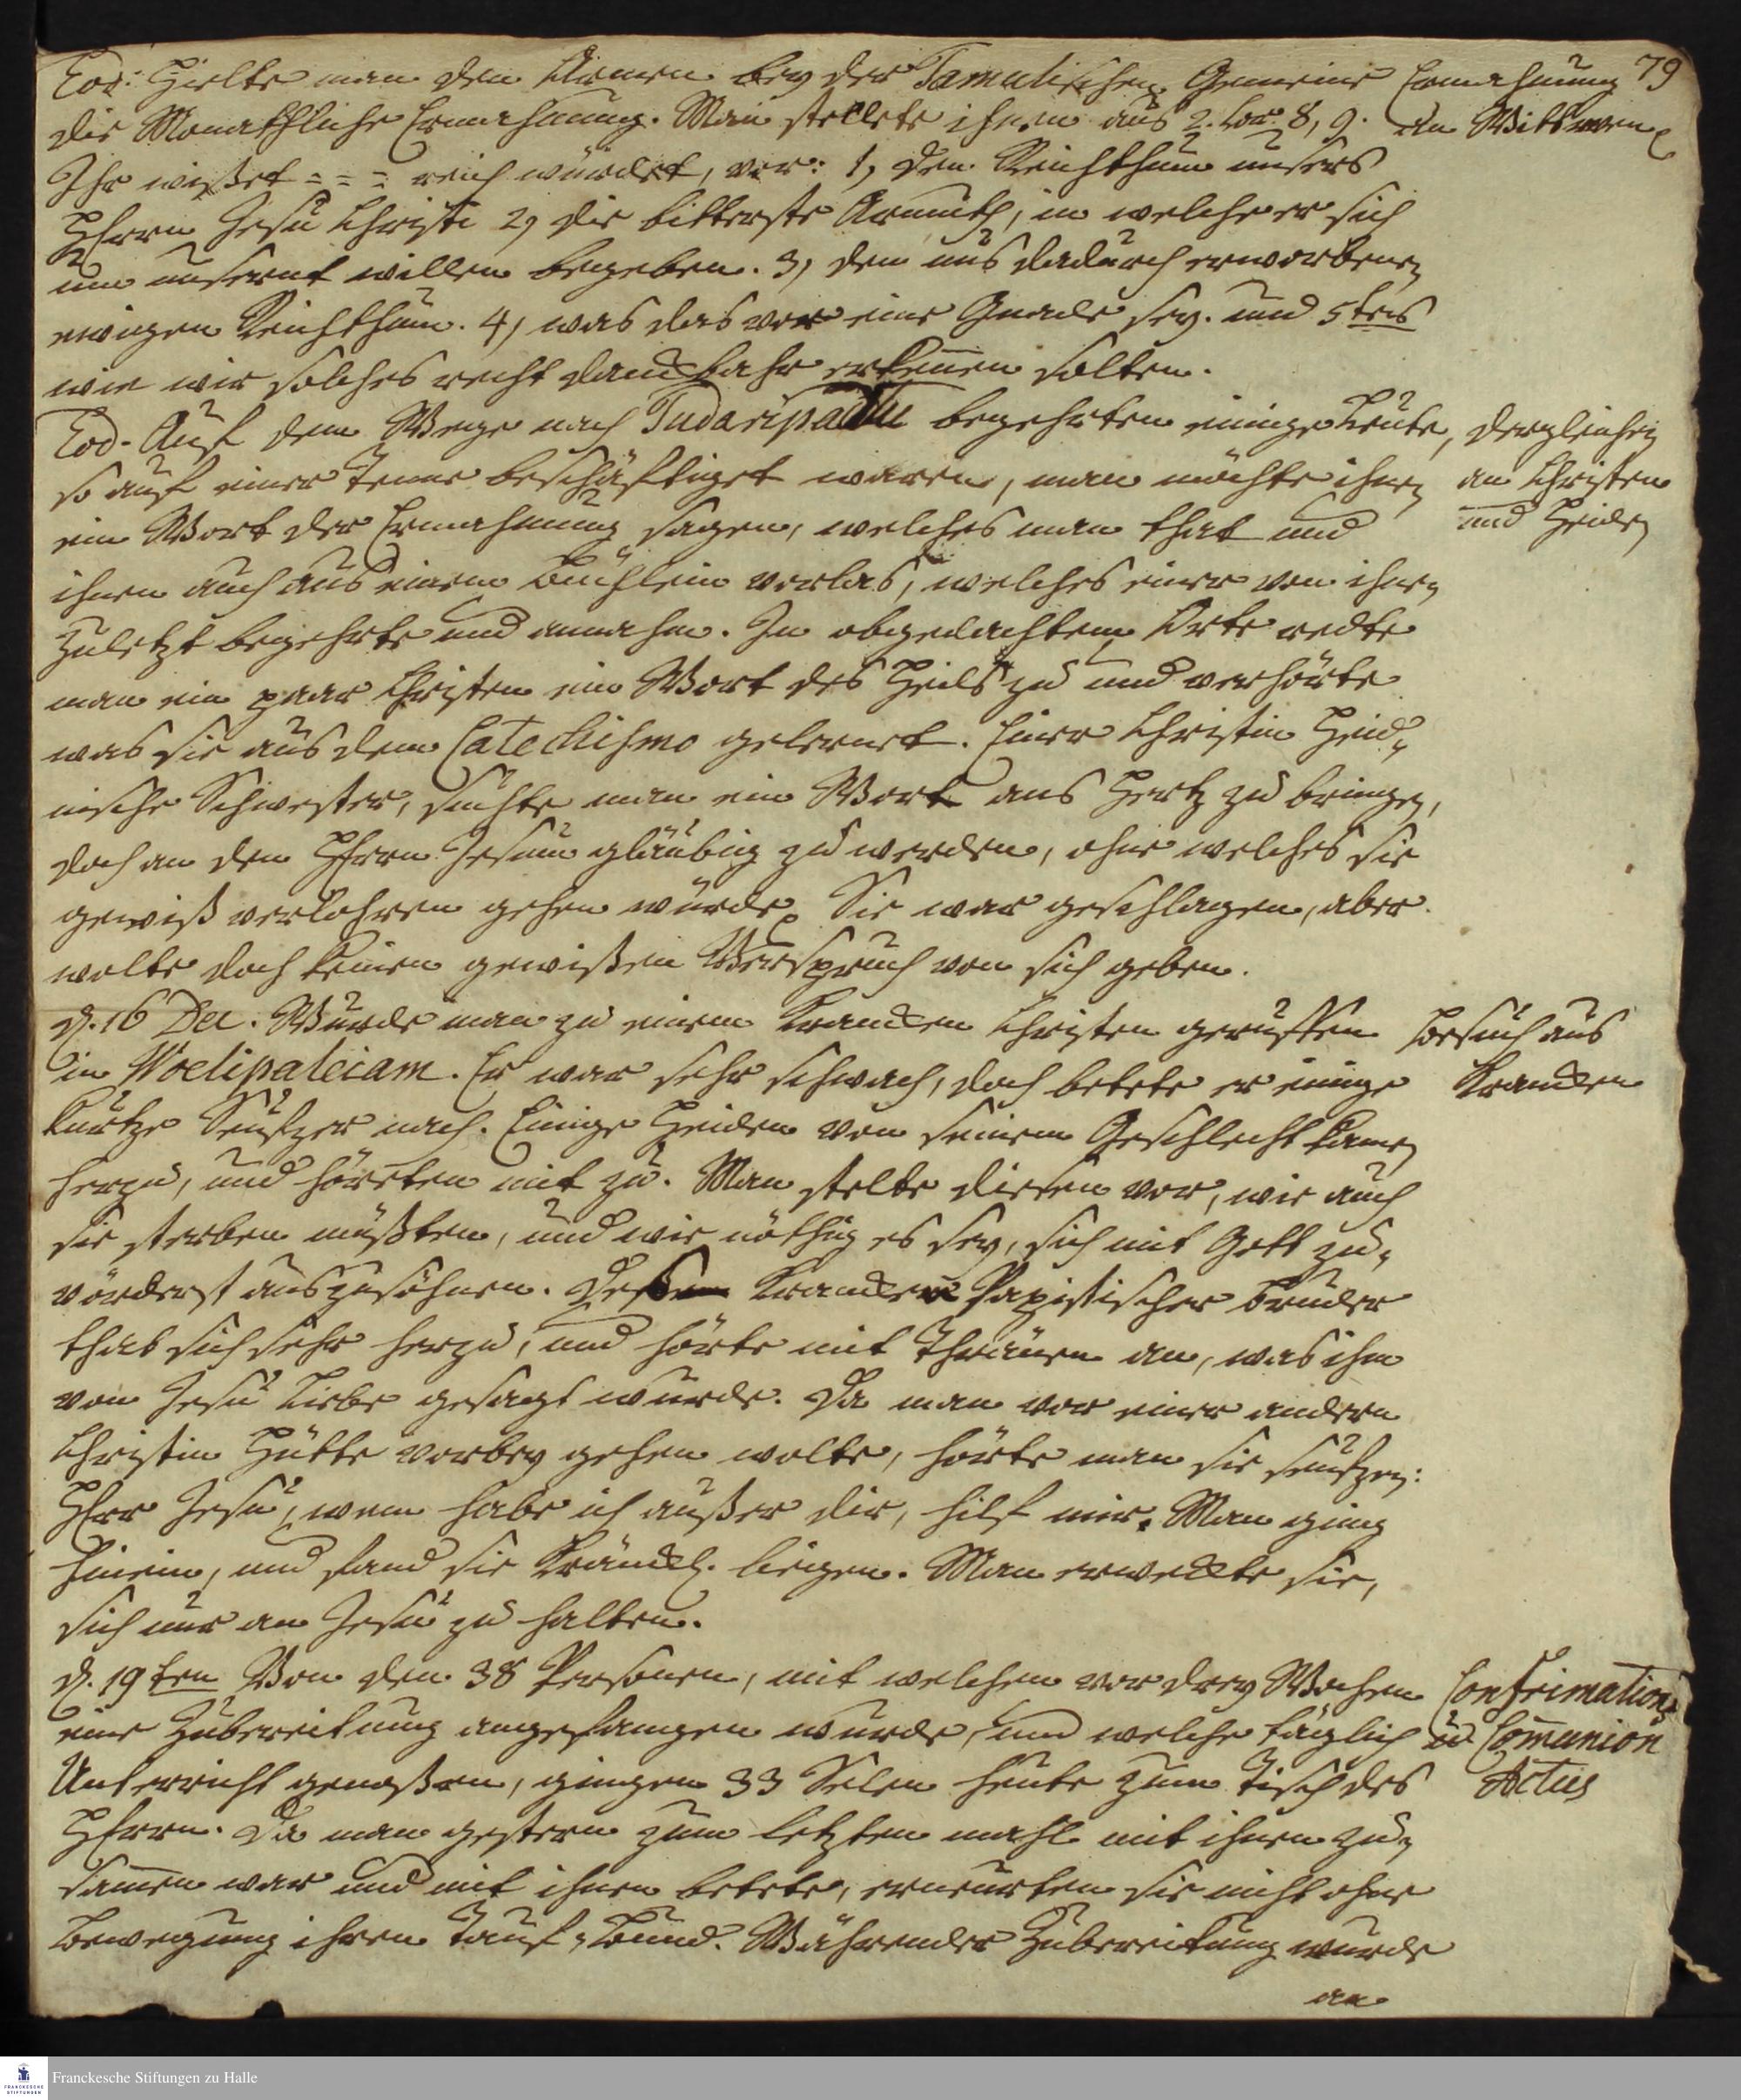 79
Eod: Hielte man den Armen bey der Tamulischen Gemeine
die Monathliche Ermahnung. Man stellete ihnen aus 2. Cor. 8, 9.
Ermahnung
an Wittwen
Ihr wißet = = = reich würdet, vor: 1, den Reichthum unsers
HErrn Jesu Christi 2, die bitterste Armuth, in welche er sich
um unsernt willen begeben. 3, den uns dadurch erworbenen
ewigen Reichthum. 4, was das vor eine Gnade sey. und 5tens
wie wir solches recht danckbahr erkennen solten.
Eod. Auf dem Wege nach Tudaripattu begehrten einige Leute,
so auf einer Tenne beschäftiget waren, man möchte ihnen
ein Wort der Ermahnung sagen, welches man that und
dergleichen
an Christen
und Heiden
ihnen auch aus einem Büchlein vorlas, welches einer von ihnen
zuletzt begehrte und annahm. In obgedachtem Orte redte
man ein paar Christen ein Wort des Heils zu und verhörte
was sie aus dem Catechismo gelernet. Einer Christin Heid-
nische Schwester, suchte man ein Wort ans Hertz zu bringen,
doch an den HErrn Jesum gläubig zu werden, ohne welches sie
gewiß verlohren gehen würde. Sie war geschlagen, aber
wolte doch keinen gewißen Verspruch von sich geben.
d. 16 Dec. Wurde man zu einem Krancken Christen geruffen
in Woelipaleiam. Er war sehr schwach, doch betete er einige
Besuch aus
Krancken
kurtze Seufzer nach. Einige Heiden von seinem Geschlecht kamen
herzu, und höreten mit zu. Man stelte diesen vor, wie auch
sie sterben müßten, und wie nöthig es sey, sich mit Gott zu-
vörderst auszusöhnen. Krancken Papistischer Bruder
that sich sehr herzu, und hörte mit Thränen an, was ihm
von Jesu Liebe gesagt wurde. Da man vor einer andern
Christin Hütte vorbey gehen wolte, hörte man sie seufzen:
HErr Jesu, wenn habe ich außer dir, hilf mir. Man ging
hinein, und fand sie Kränckl. liegen. Man erweckte sie,
sich nur an Jesu zu halten.
d. 19ten Von den 38 Personen, mit welchen vor drey Wochen
eine Zubereitung angefangen wurde, und welche täglich
Unterricht genoßen, gingen 33 Selen heute zum Tisch des
Confirmation
und Communion
Actus
HErrn. Da man gestern zum letzten mahl mit ihnen zu-
sammen war und mit ihnen betete, erneurten sie nicht ohne
Bewegung ihren Tauf-Bund. Währender Zubereitung wurde
an
Franckesche Stiftungen zu Halle